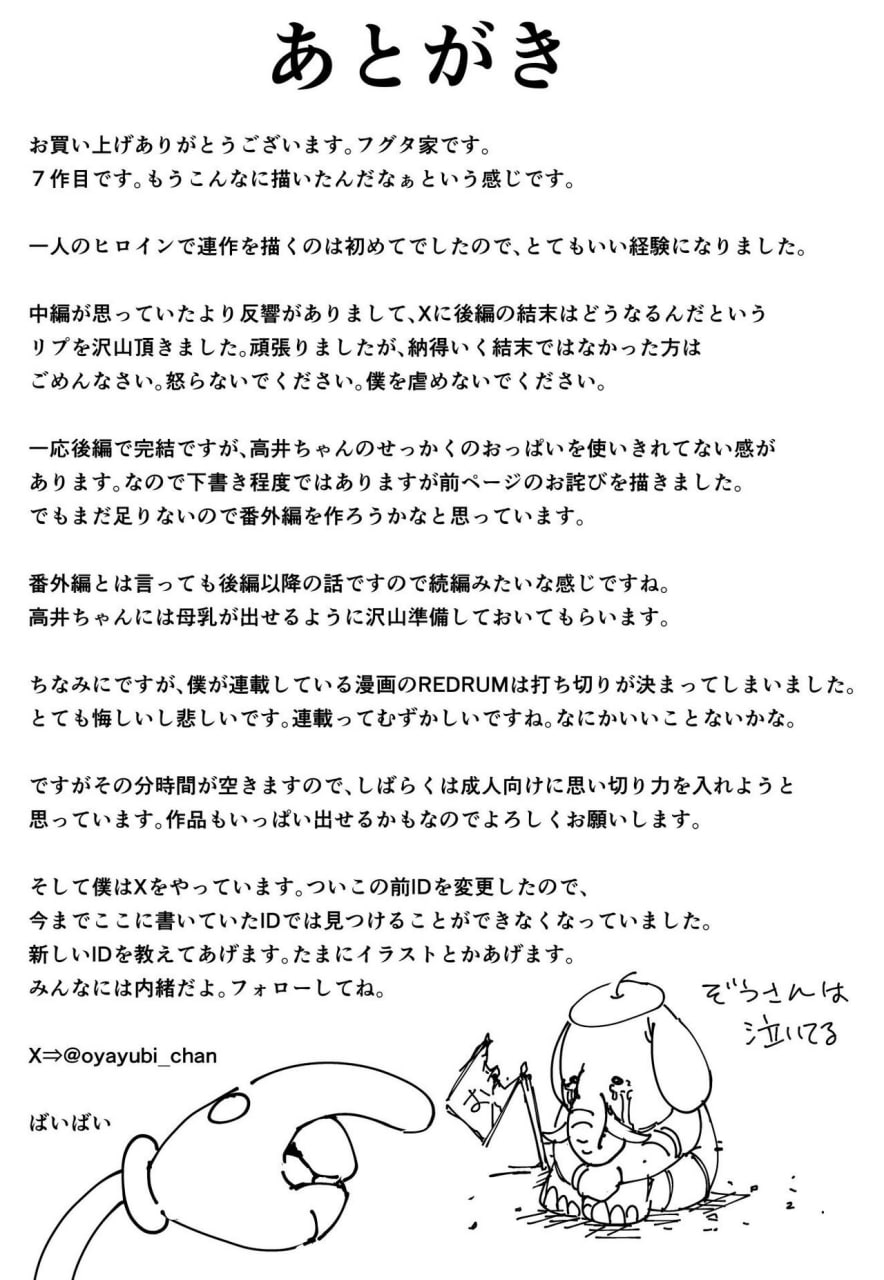 あとがき
お買い上げありがとうございます。フグタ家です。
７作目です。もうこんなに描いたんだなぁという感じです。
一人のヒロインで連作を描くのは初めてでしたので、とてもいい経験になりました。
中編が思っていたより反響がありまして、Xに後編の結末はどうなるんだという
リプを沢山頂きました。頑張りましたが、納得いく結末ではなかった方は
ごめんなさい。怒らないでください。僕を虐めないでください。
一応後編で完結ですが、高井ちゃんのせっかくのおっぱいを使いきれてない感が
あります。なので下書き程度ではありますが前ページのお詫びを描きました。
でもまだ足りないので番外編を作ろうかなと思っています。
番外編とは言っても後編以降の話ですので続編みたいな感じですね。
高井ちゃんには母乳が出せるように沢山準備しておいてもらいます。
ちなみにですが、僕が連載している漫画のREDRUMは打ち切りが決まってしまいました。
とても悔しいし悲しいです。連載ってむずかしいですね。なにかいいことないかな。
ですがその分時間が空きますので、しばらくは成人向けに思い切り力を入れようと
思っています。作品もいっぱい出せるかもなのでよろしくお願いします。
そして僕はXをやっています。ついこの前IDを変更したので、
今までここに書いていたIDでは見つけることができなくなっていました。
新しいIDを教えてあげます。たまにイラストとかあげます。
みんなには内緒だよ。フォローしてね。
X⇒@oyayubi_chan
ばいばい
ぞうさんは
泣いてる
お